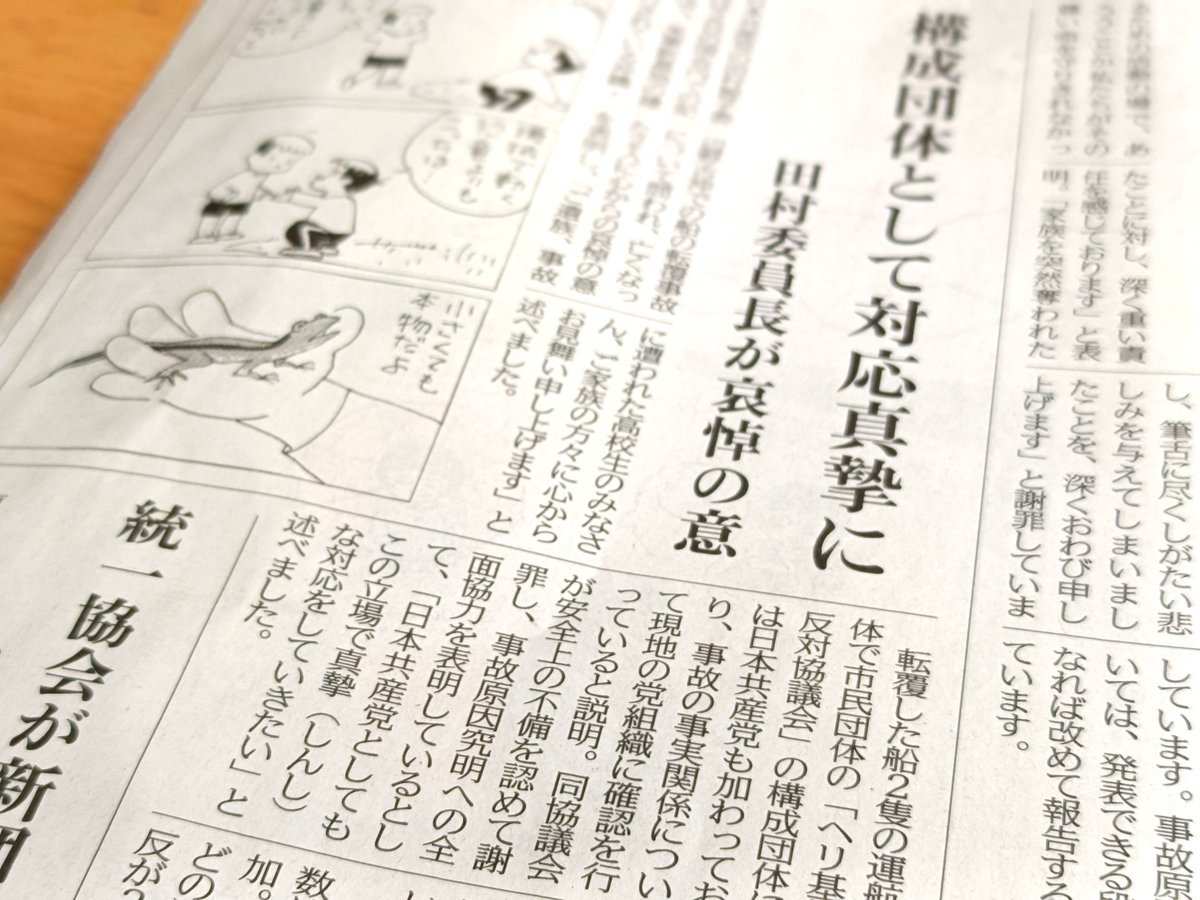 たことに対し、深く重い責
任を感じております」と表
明。「家族を突然奪われた
し、筆舌に尽くしがたい悲
しみを与えてしまいまし
たことを、深くおわび申し
上げます」と謝罪していま
しています。事故原
いては、発表できる段
なれば改めて報告する
ています。
構成団体として対応真摯に
田村委員長が哀悼の意
での船の転覆事故
について問われ、亡くなっ
哀悼の意
を表明し、「ご遺族、事故
に遭われた高校生のみなさ
ん、ご家族の方々に心から
お見舞い申し上げます」と
述べました。
転覆した船2隻の運航
体で市民団体の「ヘリ基
反対協議会」の構成団体に
は日本共産党も加わってお
り、事故の事実関係につい
て現地の党組織に確認を行
っていると説明。同協議会
が安全上の不備を認めて謝
罪し、事故原因究明への全
面協力を表明しているとし
て、「日本共産党としても
この立場で真摯（しんし）
な対応をしていきたい」と
述べました。
小さくても
本物だよ
統一協会が新
数
加。
どの
反が